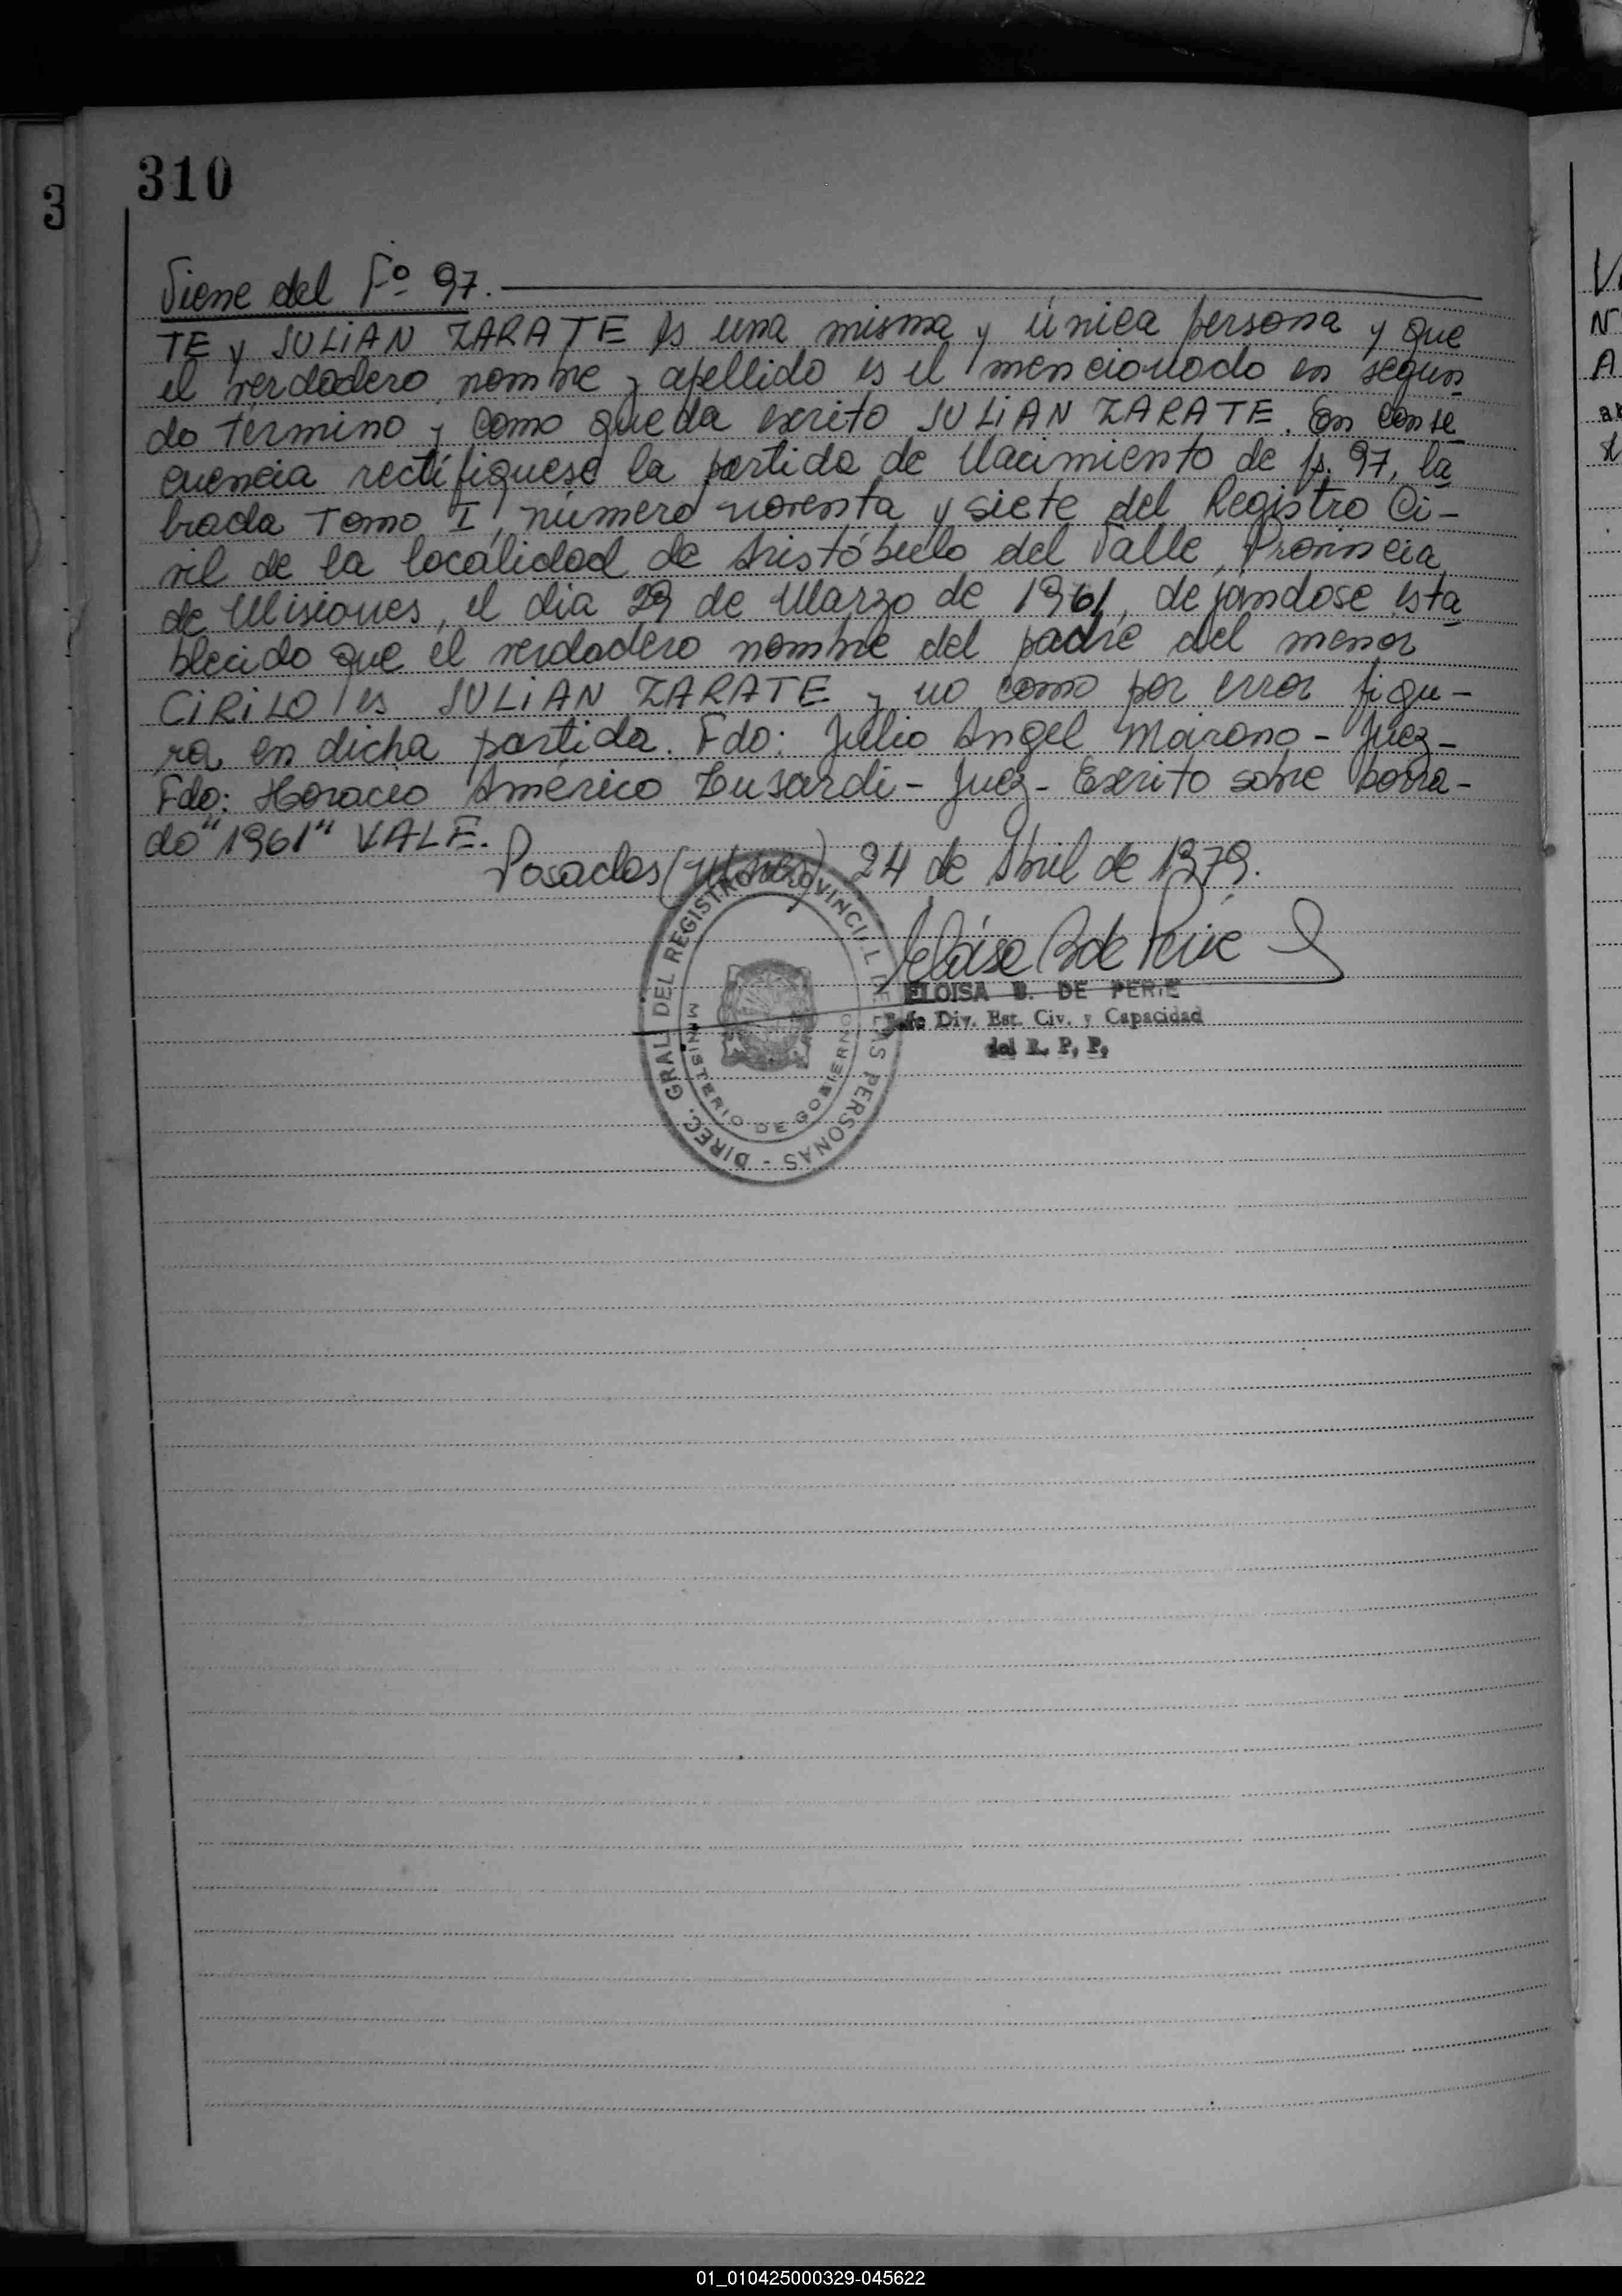 310
Viene del Fº 97.
TE y JULIAN ZARATE es una misma y única persona y que
el verdadero nombre y apellido es el mencionado en segun
do término y como queda escrito JULIAN ZARATE. En conse
cuencia rectifíquese la partida de Nacimiento de fs. 97, la
brada Tomo I, número noventa y siete del Registro Ci-
vil de la localidad de Aristóbulo del Valle, Provincia
de Misiones, el día 29 de Marzo de 1961, dejándose esta
blecido que el verdadero nombre del padre del menor
CIRILO es JULIAN ZARATE y no como por error figu-
ra en dicha partida. Fdo: Julio Angel Moirano - Juez-
Fdo: Horacio Américo Lusardi - Juez - Escrito sobre borra-
do "1961" VALE.
Posadas (Mnes) 24 de Abril de 1979.
ELOISA B. DE PERIE
Jefe Div. Est. Civ. y Capacidad
del R. P. P.
DIREC. GRAL DEL REGISTRO PROVINCIAL DE LAS PERSONAS -
MINISTERIO DE GOBIERNO
3
A
01_010425000329-045622